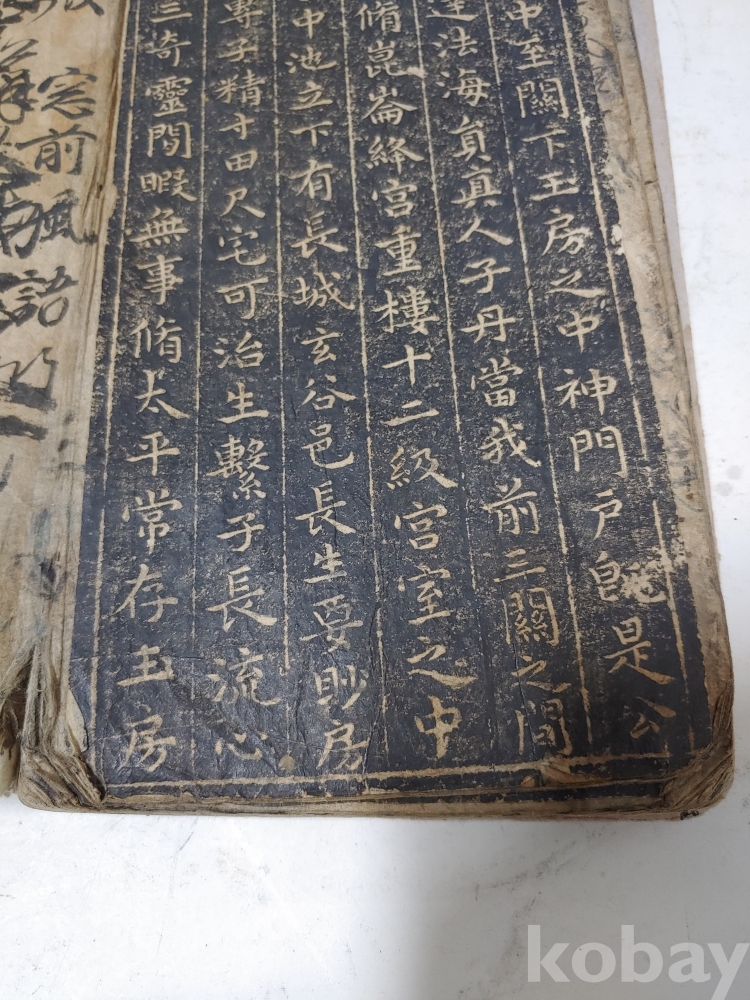 中至關下玉房之中神門戶既是公
達法海員真人子丹當我前三關之間
脩崑崙絳宮重樓十二級宮室之中
中池立下有長城玄谷邑長生要眇房
專子精寸田尺宅可治生繫子長流心
三奇靈閒暇無事脩太平常存玉房
前風語
kobay